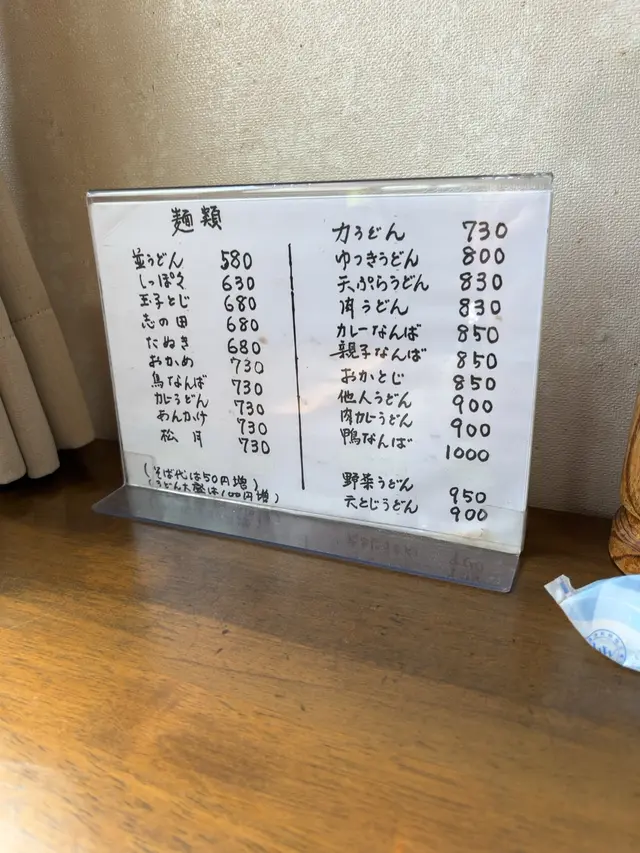 麺類
並うどん 580
しっぽく 630
玉子とじ 680
志の田 680
たぬき 680
おかめ 730
鳥なんば 730
カレーうどん 730
あんかけ 730
松月 730
(そば代は50円増)
(うどん大盛は100円増)
力うどん 730
ゆっきうどん 800
天ぷらうどん 830
肉うどん 830
カレーなんば 850
親子なんば 850
おかとじ 850
他人うどん 900
肉カレーうどん 900
鴨なんば 1000
野菜うどん 950
天とじうどん 900